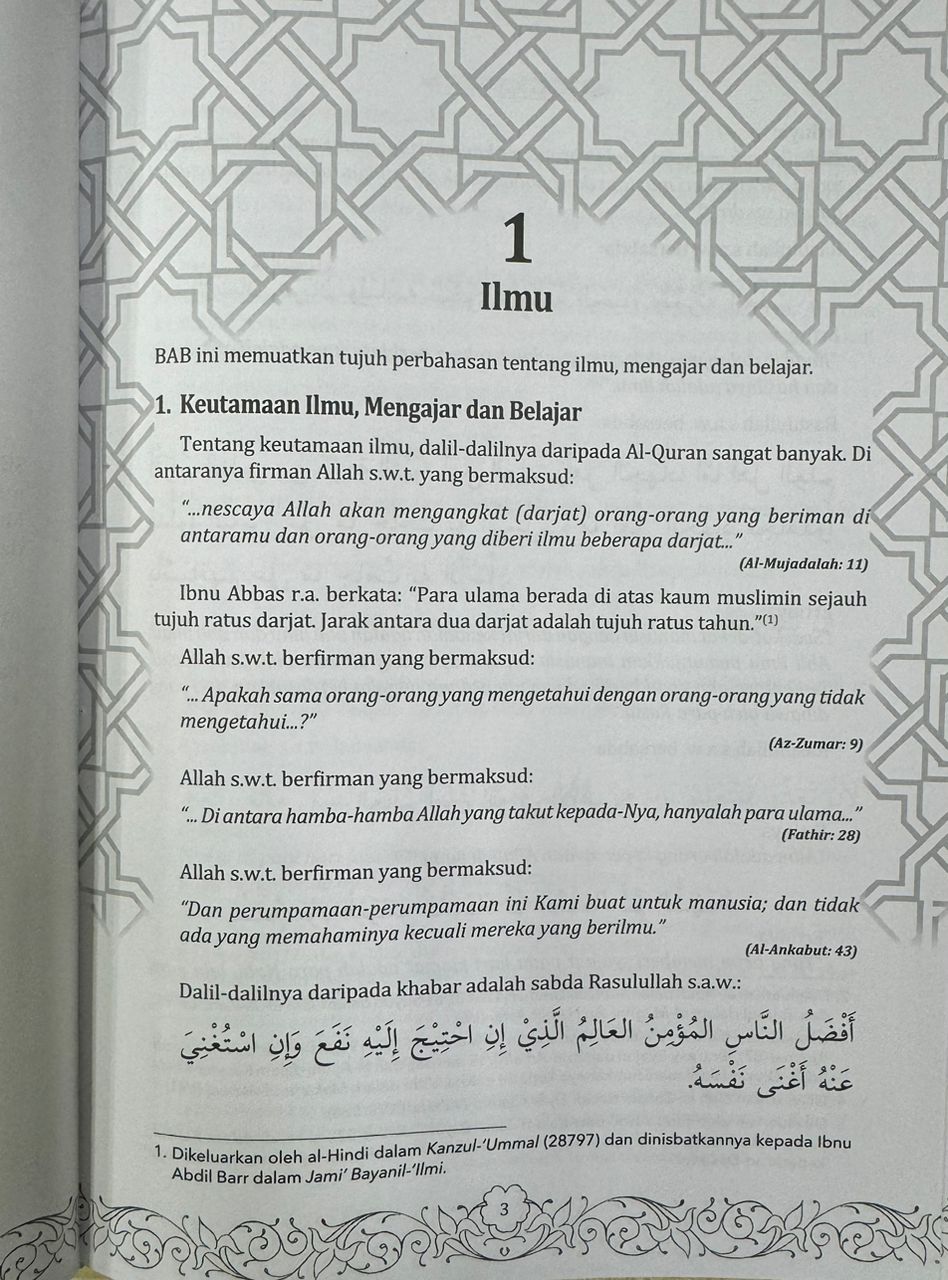 1
Ilmu
BAB ini memuatkan tujuh perbahasan tentang ilmu, mengajar dan belajar.
1. Keutamaan Ilmu, Mengajar dan Belajar
Tentang keutamaan ilmu, dalil-dalilnya daripada Al-Quran sangat banyak. Di
antaranya firman Allah s.w.t. yang bermaksud:
“...nescaya Allah akan mengangkat (darjat) orang-orang yang beriman di
antaramu dan orang-orang yang diberi ilmu beberapa darjat...”
(Al-Mujadalah: 11)
Ibnu Abbas r.a. berkata: “Para ulama berada di atas kaum muslimin sejauh
tujuh ratus darjat. Jarak antara dua darjat adalah tujuh ratus tahun.”(1)
Allah s.w.t. berfirman yang bermaksud:
“... Apakah sama orang-orang yang mengetahui dengan orang-orang yang tidak
mengetahui...?”
(Az-Zumar: 9)
Allah s.w.t. berfirman yang bermaksud:
“... Di antara hamba-hamba Allah yang takut kepada-Nya, hanyalah para ulama...”
(Fathir: 28)
Allah s.w.t. berfirman yang bermaksud:
“Dan perumpamaan-perumpamaan ini Kami buat untuk manusia; dan tidak
ada yang memahaminya kecuali mereka yang berilmu.”
(Al-Ankabut: 43)
Dalil-dalilnya daripada khabar adalah sabda Rasulullah s.a.w.:
أَفْضَلُ النَّاسِ المُؤْمِنُ العَالِمُ الَّذِيْ إِنِ احْتِيْجَ إِلَيْهِ نَفَعَ وَإِنِ اسْتُغْنِيَ
عَنْهُ أَغْنَى نَفْسَهُ.
1. Dikeluarkan oleh al-Hindi dalam Kanzul-‘Ummal (28797) dan dinisbatkannya kepada Ibnu
Abdil Barr dalam Jami’ Bayanil-‘Ilmi.
3